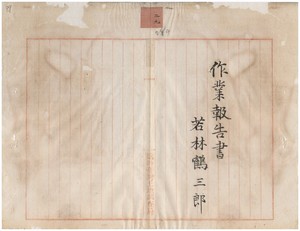 作業報告書
若林鶴三郎